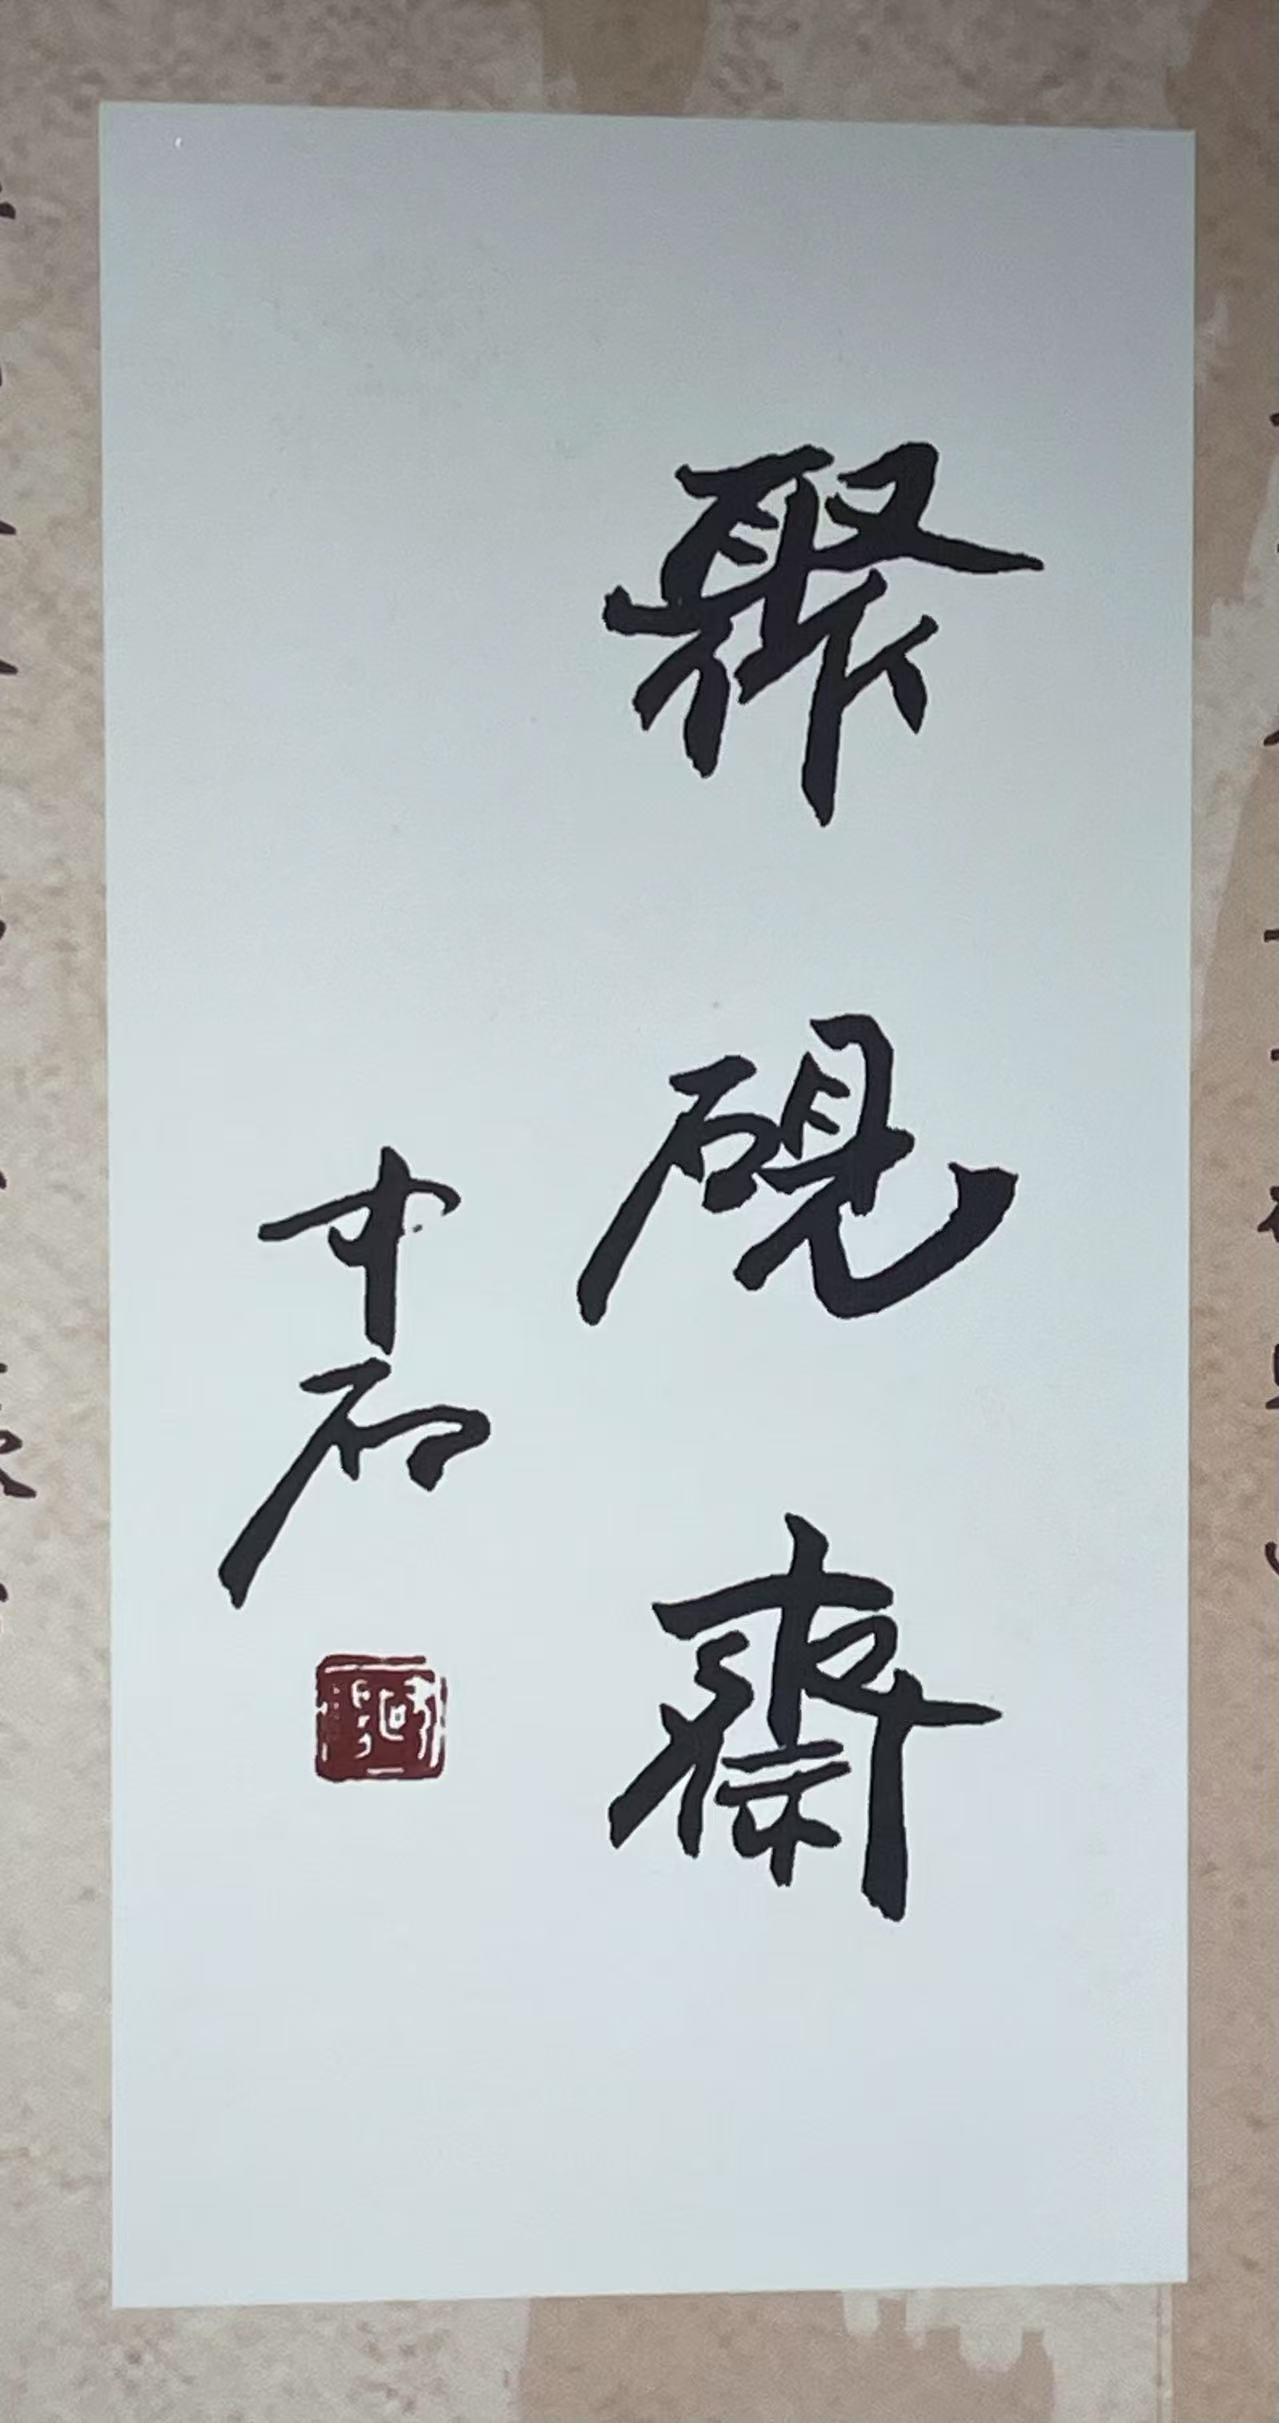 聚硯齋
中石